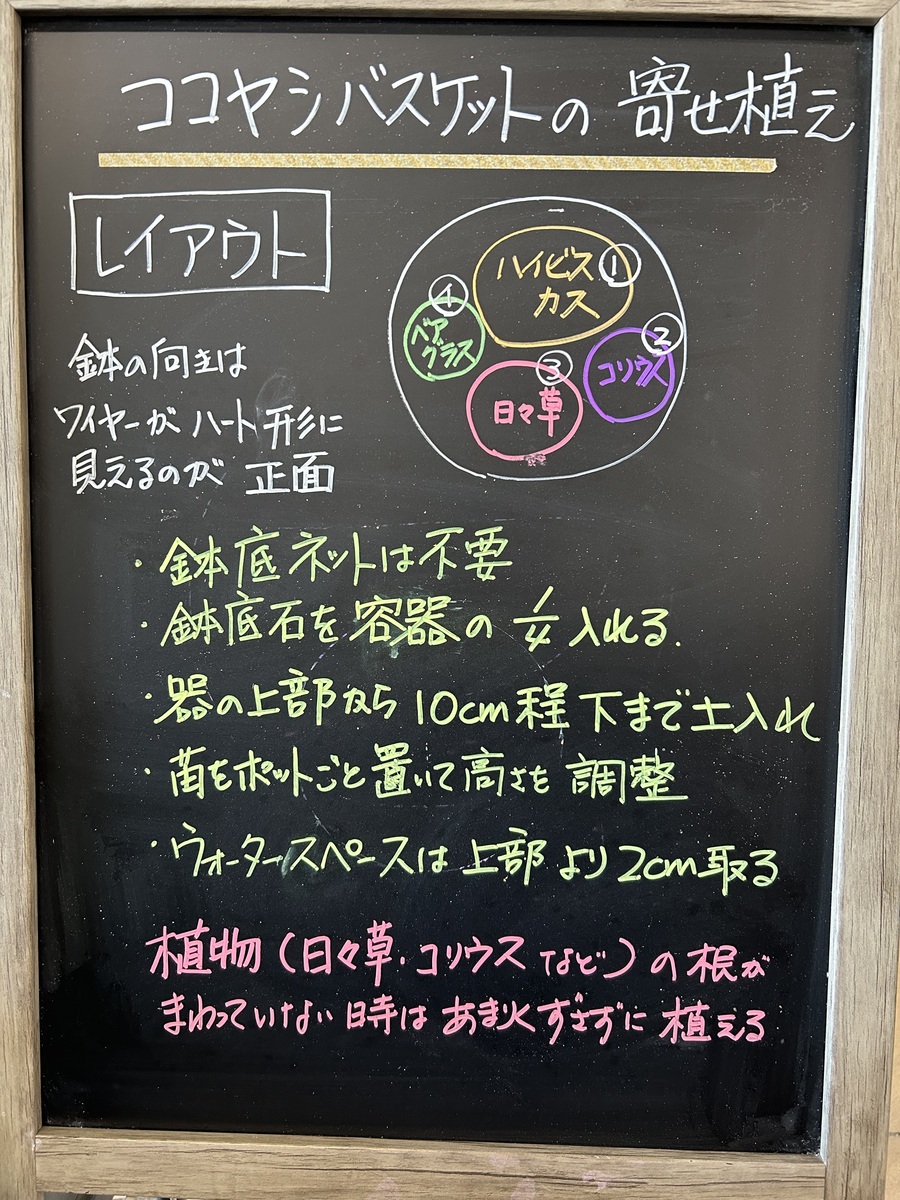 ココヤシバスケットの寄せ植え
レイアウト
ハイビス
カス
①
④
ベア
グラス
②
コリウス
③
日々草
鉢の向きは
ワイヤーがハート形に
見えるのが 正面
・鉢底ネットは不要
・鉢底石を容器の 1/4 入れる.
・器の上部から10cm程下まで土入れ
・苗をポットごと置いて高さを調整
・ウォータースペースは上部より2cm取る
植物(日々草・コリウスなど)の根が
まわっていない時はあまりくずさずに植える